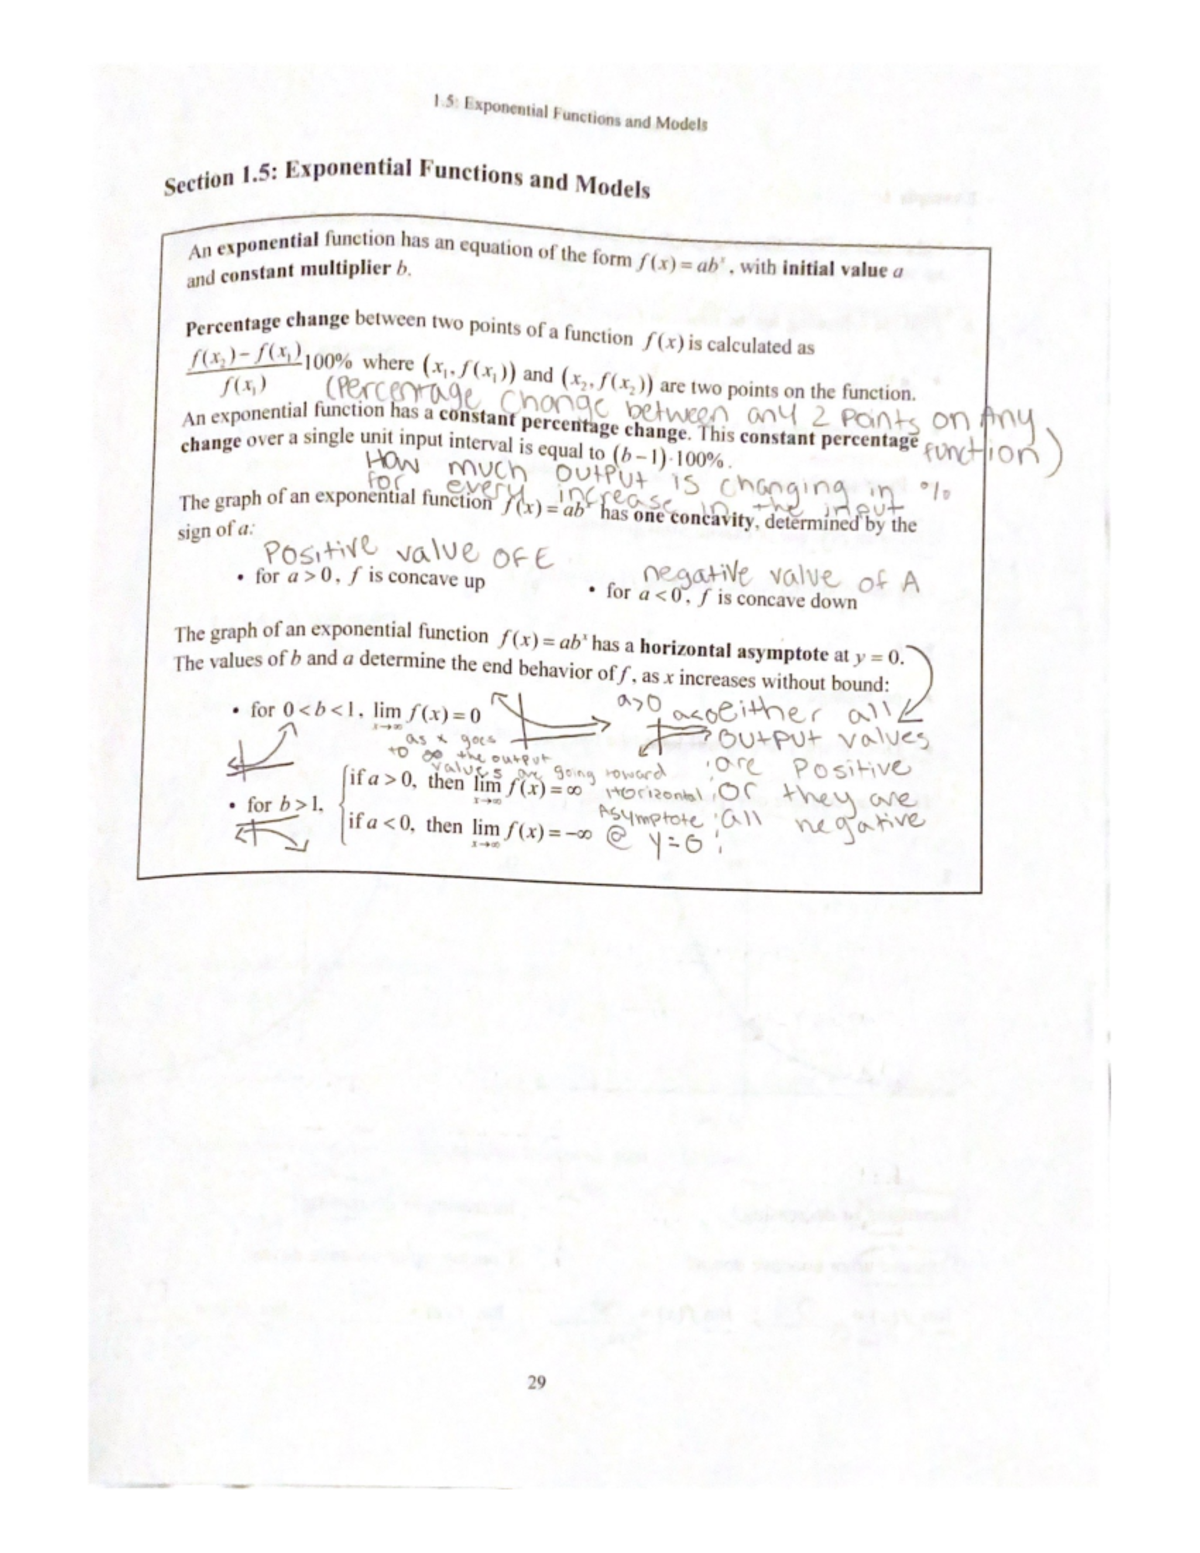 1.5: Exponential Functions and Models
Section 1.5: Exponential Functions and Models
An exponential function has an equation of the form f(x) = abˣ, with initial value a
and constant multiplier b.
Percentage change between two points of a function f(x) is calculated as
(f(x₂) − f(x₁))/f(x₁) 100% where (x₁, f(x₁)) and (x₂, f(x₂)) are two points on the function.
(Percentage change between any 2 points on Any
function)
An exponential function has a constant percentage change. This constant percentage
change over a single unit input interval is equal to (b − 1)·100%.
How much output is changing in %
for every increase in the input
The graph of an exponential function f(x) = abˣ has one concavity, determined by the
sign of a:
Positive value OF E
• for a > 0, f is concave up
negative value of A
• for a < 0, f is concave down
The graph of an exponential function f(x) = abˣ has a horizontal asymptote at y = 0.
The values of b and a determine the end behavior of f, as x increases without bound:
• for 0 < b < 1, lim x→∞ f(x) = 0
a>0
a<0
either all
output values
are positive
or they are
all negative
as x goes
to ∞ the output
values are going toward
Horizontal
Asymptote
@ y=0
• for b > 1,
if a > 0, then lim x→∞ f(x) = ∞
if a < 0, then lim x→∞ f(x) = −∞
29